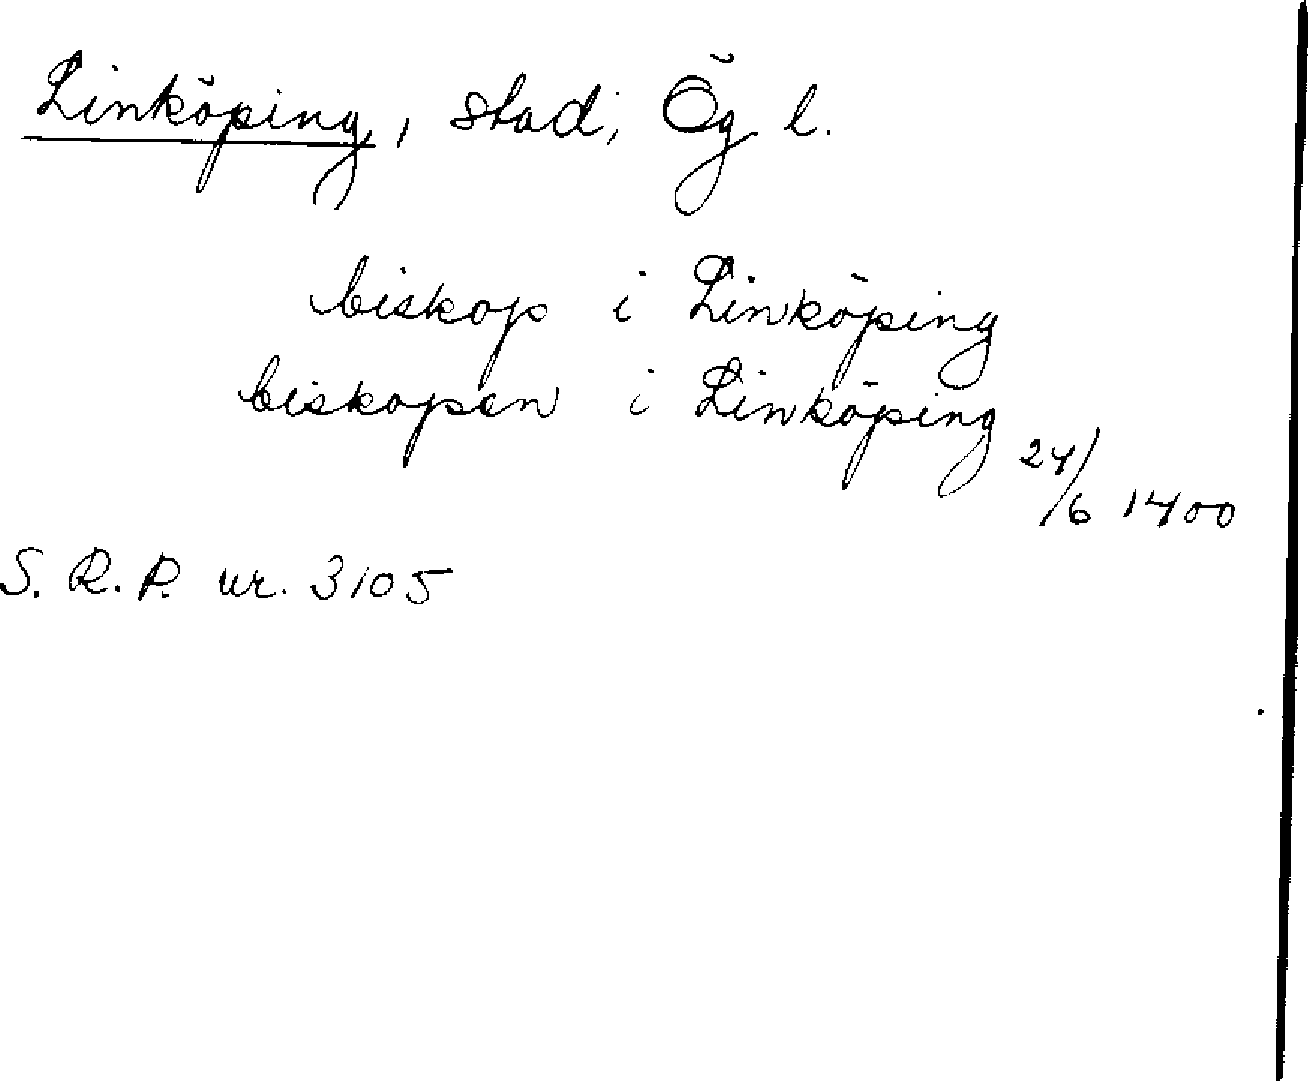 Linköping, stad, Ög l.
biskop i Linköping
biskopen i Linköping 24/6 1400
S. R. P. nr. 3105